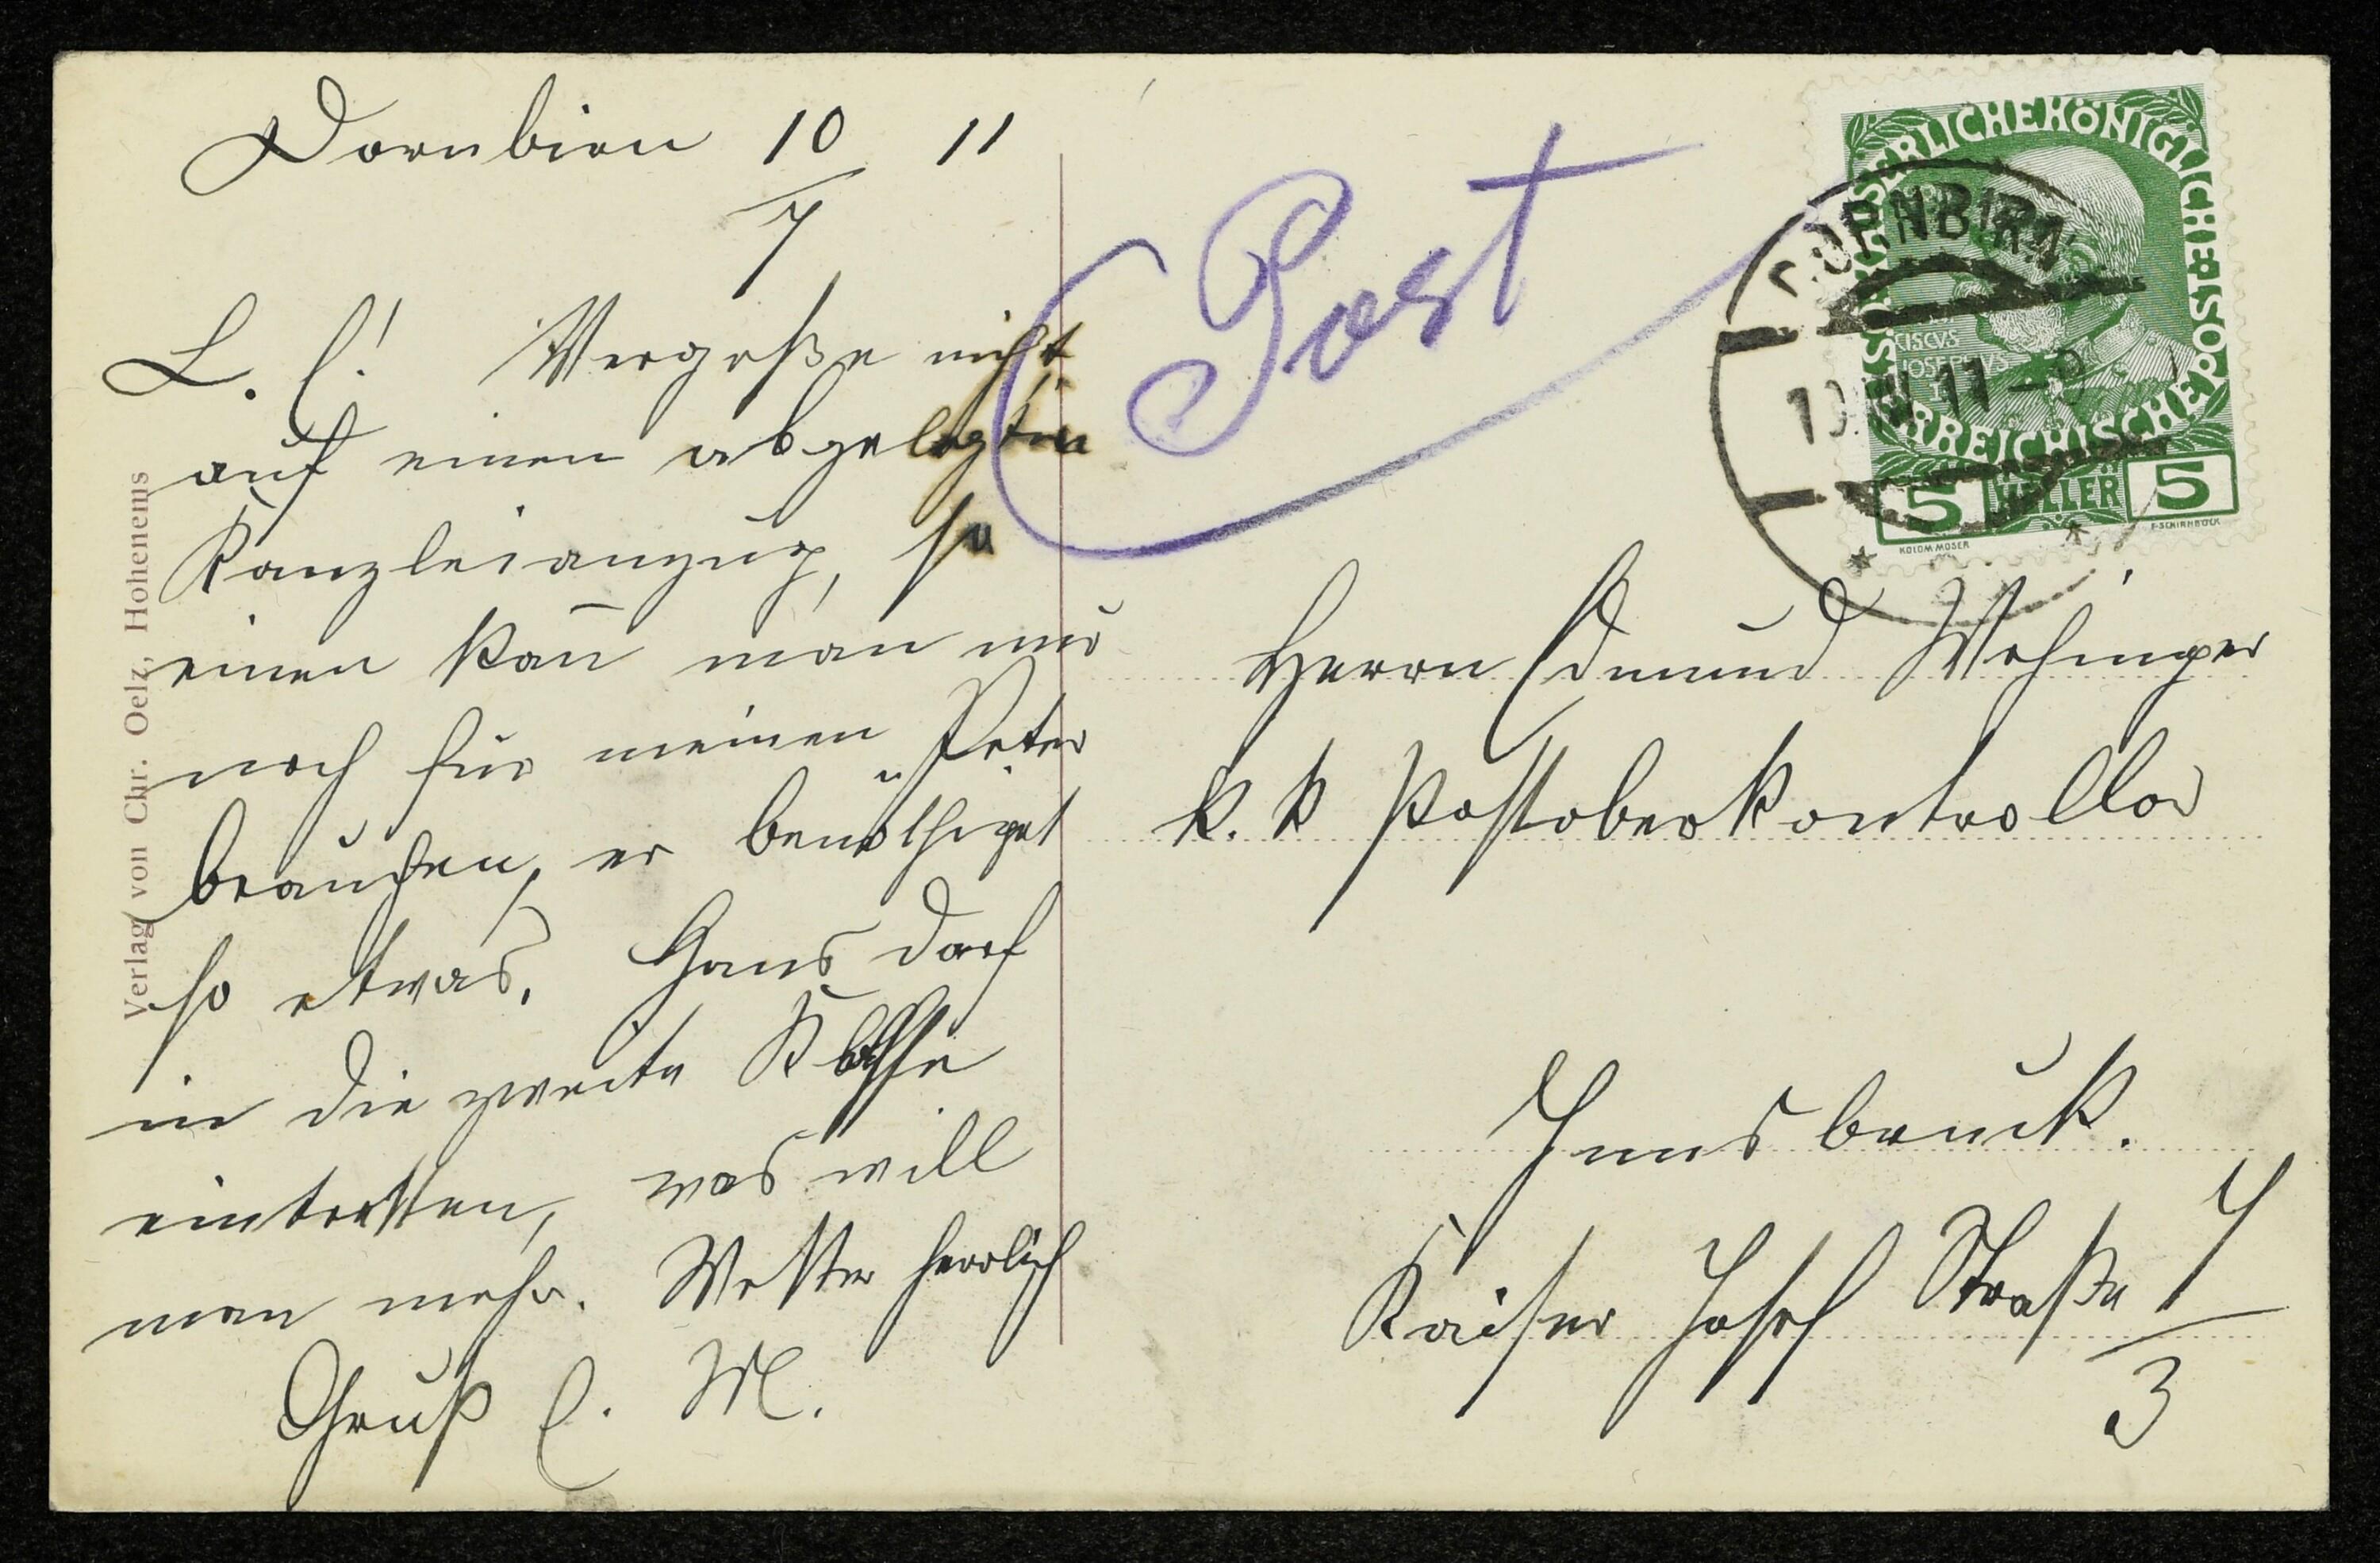 Dornbirn 10/7 11
L. E! Vergeße nicht
auf einen abgelegten
Kanzleianzug, so
einen kan̄ man nur
noch für meinen „Peter
brauchen, er benöthiget
so etwas. Hans darf
in die zweite Klasse
eintretten, was will
man mehr. Wetter herrlich
Gruß E. M.
Verlag von Chr. Oelz, Hohenems
Post
KAISERLICHE KÖNIGLICHE
ÖSTERREICHISCHE POST
5 HELLER 5
KOLOM. MOSER
F. SCHIRNBÖCK
DORNBIRN
Herrn Edmund
K. K Postoberkontrollor
Innsbruck.
Kaiser Josef Straße 7/3